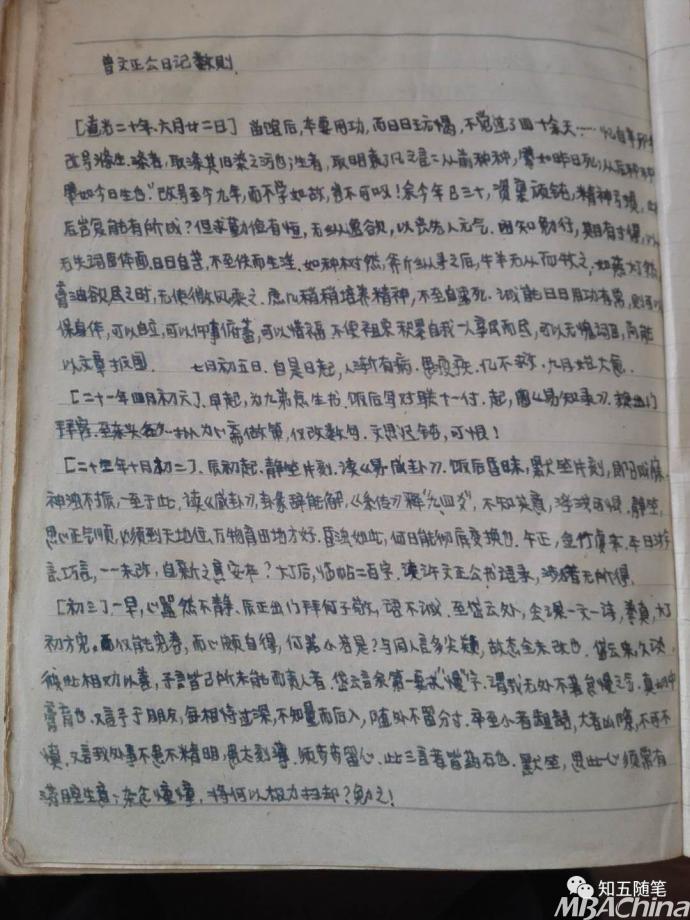 曾文正公日记数则
[道光二十年、六月廿二日] 留馆后，本要用功，而日日玩愒，不觉过了四十余天……忆自辛卯年
改号涤生。涤者，取涤其旧染之污也；生者，取明袁了凡之言：从前种种，譬如昨日死；从后种种
譬如今日生也。”改号至今九年，而不学如故，岂不可叹！余今年已三十，资禀顽钝，精神亏损，此
后岂复能有所成？但求勤俭有恒，无纵逸欲，以丧先人元气。困知勉行，期有寸得，以
无失词臣体面，日日自苦，不至佚而生淫。如种树然，斧斤纵寻之后，牛羊无从而牧之；如爇灯然
膏油欲尽之时，无使微风乘之。庶几稍稍培养精神，不至自速死。诚能日日用功有常，则可以
保身体，可以自立，可以仰事俯蓄，可以惜福，不使祖宗积累自我一人享尽而尽，可以无愧词臣，尚能
以文章报国。 七月初五日，自是日起，人渐有病，患疫疾，几不救，九月始大愈。
[二十一年四月初六]、早起，为九弟点生书，饭后写对联十一付。起，圈《易知录》。换出门
拜客，至 心斋做策，仅改数句，文思迟钝，可恨！
[二十二年十月初二]、辰初起，静坐片刻，读《易·咸卦》。饭后昏昧，默坐片刻，即已成寐
神浊不振，一至于此，读《咸卦》卦象辞能解，《系传》释“九四爻”，不知其意，浮浅可恨。静坐，
思心正气顺，必须到天地位、万物育田地方好。昏浊如此，何日能彻底变换也。午正，金竹虔来，平日游
言巧言，一一未改，自新之意安在？灯后，临帖二百字，读许文正公书语录，涉猎无所得。
[初三]一早，心嚣然不静。辰正出门拜何子敬，语不诚。至岱云处，会课一文一诗，誊真，灯
初方完。而仅能完卷，而心颇自得，何器小若是？与同人言多尖颖，故态全未改也。岱云来，久谈，
彼此相劝以善，予言皆己所未能而责人者。岱云言余第一要戒“慢”字，谓我无处不著怠慢之气，真切中
膏肓也。又言予于朋友，每相恃过深，不知量而后入，随处不留分寸，卒至小者龃龉，大者凶隙，不可不
慎。又言我处事不患不精明，患太刻薄，须步步留心。此三言者皆药石也。默坐，思此心须常有
满腔生意；杂念憧憧，将何以极力扫却？勉之！
知五随笔
MBAChina